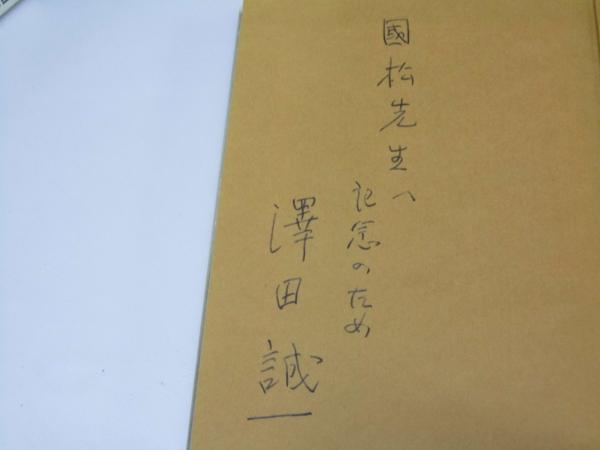 國松先生へ
記念のため
澤田誠一